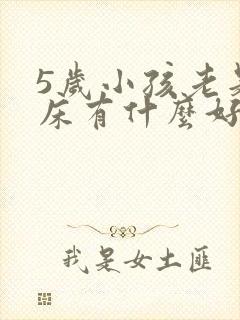 5歲小孩老是
床有什麼好
我是女土匪